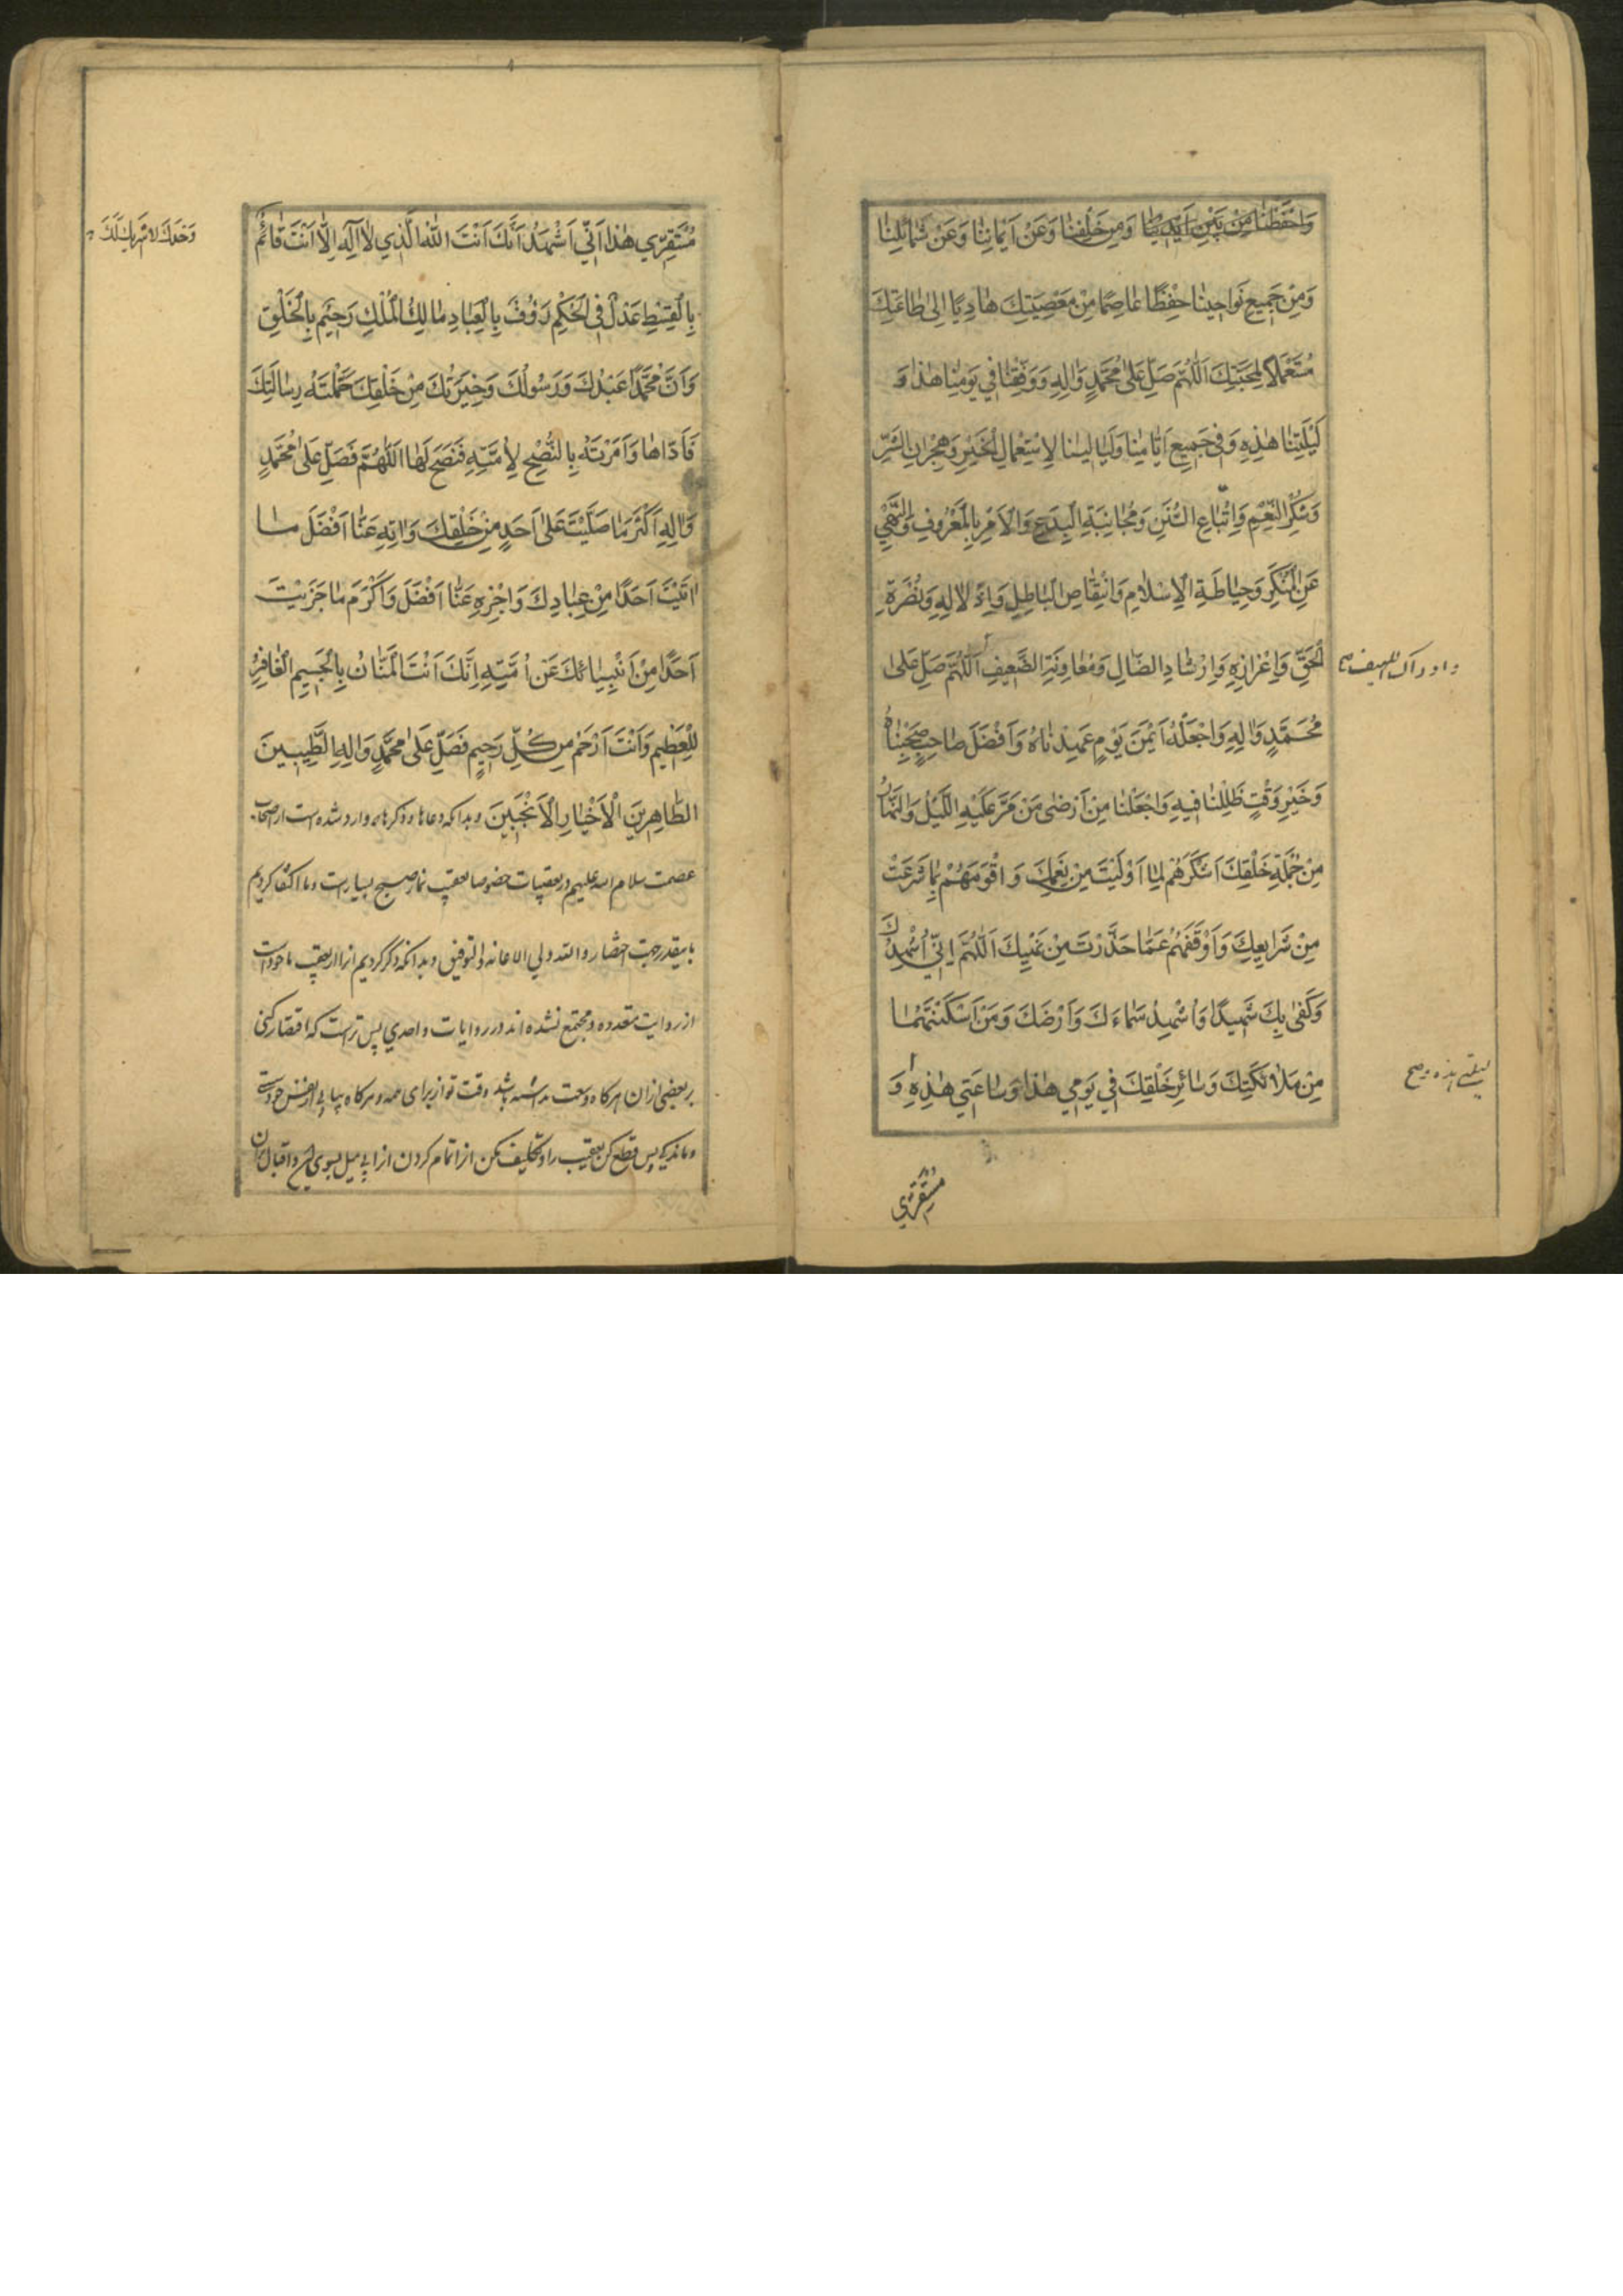 وَاحْفَظْنَا مِنْ بَيْنِ اَيْدِينَا وَمِنْ خَلْفِنَا وَعَنْ اَيْمَانِنَا وَعَنْ شَمَائِلِنَا
وَمِنْ جَمِيعِ نَوَاحِينَا حِفْظًا عَاصِمًا مِنْ مَعْصِيَتِكَ هَادِيًا اِلٰى طَاعَتِكَ
مُسْتَعْمِلًا لِمَحَبَّتِكَ اَللّٰهُمَّ صَلِّ عَلٰى مُحَمَّدٍ وَاٰلِهِ وَوَفِّقْنَا فِي يَوْمِنَا هٰذَا وَ
لَيْلَتِنَا هٰذِهِ وَفِي جَمِيعِ اَيَّامِنَا وَلَيَالِينَا لِاسْتِعْمَالِ الْخَيْرِ وَهِجْرَانِ الشَّرِّ
وَشُكْرِ النِّعَمِ وَاتِّبَاعِ السُّنَنِ وَمُجَانَبَةِ الْبِدَعِ وَالْاَمْرِ بِالْمَعْرُوفِ وَالنَّهْيِ
عَنِ الْمُنْكَرِ وَحِيَاطَةِ الْاِسْلَامِ وَانْتِقَاصِ الْبَاطِلِ وَاِذْلَالِهِ وَنُصْرَةِ
الْحَقِّ وَاِعْزَازِهِ وَاِرْشَادِ الضَّالِّ وَمُعَاوَنَةِ الضَّعِيفِ اَللّٰهُمَّ صَلِّ عَلٰى
وادراك اللهيف صح
مُحَمَّدٍ وَاٰلِهِ وَاجْعَلْهُ اَيْمَنَ يَوْمٍ عَهِدْنَاهُ وَاَفْضَلَ صَاحِبٍ صَحِبْنَاهُ
وَخَيْرَ وَقْتٍ ظَلِلْنَا فِيهِ وَاجْعَلْنَا مِنْ اَرْضٰى مَنْ مَرَّ عَلَيْهِ اللَّيْلُ وَالنَّهَارُ
مِنْ جُمْلَةِ خَلْقِكَ اَشْكَرَهُمْ لِمَا اَوْلَيْتَ مِنْ نِعَمِكَ وَاَقْوَمَهُمْ بِمَا شَرَعْتَ
مِنْ شَرَايِعِكَ وَاَوْقَفَهُمْ عَمَّا حَذَّرْتَ مِنْ نَهْيِكَ اَللّٰهُمَّ اِنِّي اُشْهِدُكَ
وَكَفٰى بِكَ شَهِيدًا وَاُشْهِدُ سَمَاءَكَ وَاَرْضَكَ وَمَنْ اَسْكَنْتَهُمَا
مِنْ مَلَائِكَتِكَ وَسَائِرِ خَلْقِكَ فِي يَوْمِي هٰذَا وَسَاعَتِي هٰذِهِ وَ
ليلتي هذه و صح
مُسْتَقَرِّي
مُسْتَقَرِّي هٰذَا اَنِّي اَشْهَدُ اَنَّكَ اَنْتَ اللّٰهُ الَّذِي لَا اِلٰهَ اِلَّا اَنْتَ قَائِمٌ
وَحْدَكَ لَا شَرِيكَ لَكَ
بِالْقِسْطِ عَدْلٌ فِي الْحُكْمِ رَؤُفٌ بِالْعِبَادِ مَالِكُ الْمُلْكِ رَحِيمٌ بِالْخَلْقِ
وَاَنَّ مُحَمَّدًا عَبْدُكَ وَرَسُولُكَ وَخِيَرَتُكَ مِنْ خَلْقِكَ حَمَّلْتَهُ رِسَالَتَكَ
فَاَدَّاهَا وَاَمَرْتَهُ بِالنُّصْحِ لِاُمَّتِهِ فَنَصَحَ لَهَا اَللّٰهُمَّ فَصَلِّ عَلٰى مُحَمَّدٍ
وَاٰلِهِ اَكْثَرَ مَا صَلَّيْتَ عَلٰى اَحَدٍ مِنْ خَلْقِكَ وَاٰتِهِ عَنَّا اَفْضَلَ مَا
اٰتَيْتَ اَحَدًا مِنْ عِبَادِكَ وَاجْزِهِ عَنَّا اَفْضَلَ وَاَكْرَمَ مَا جَزَيْتَ
اَحَدًا مِنْ اَنْبِيَائِكَ عَنْ اُمَّتِهِ اِنَّكَ اَنْتَ الْمَنَّانُ بِالْجَسِيمِ الْغَافِرُ
لِلْعَظِيمِ وَاَنْتَ اَرْحَمُ مِنْ كُلِّ رَحِيمٍ فَصَلِّ عَلٰى مُحَمَّدٍ وَاٰلِهِ الطَّيِّبِينَ
الطَّاهِرِينَ الْاَخْيَارِ الْاَنْجَبِينَ وبدانكه دعاها وذكرها وارد شده است از اصحاب
عصمت سلام الله عليهم در تعقيبات خصوصا تعقيب نماز صبح بسيارست وما اكتفا كرديم
باينقدر بجهت اختصار والله ولي الاعانه والتوفيق وبدانكه ذكر كرديم انرا از تعقيب ماخوذ است
از روايت متعدده ومجتمع نشده اند در روايات واحدي پس ترا است كه اقتصار كنى
بر بعضى از ان هركاه وسعت نداشته باشد وقت تو از براى همه وهركاه بيابى از نفس خود سستى
وماندكى پس قطع كن تعقيب را وتكليف مكن انرا تمام كردن انرا بى ميل بسوى ان واقبال بر ان